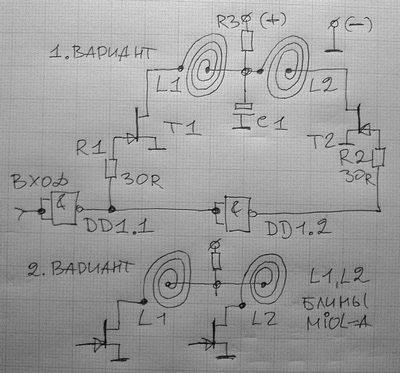 R3 (+) (-)
1. ВАРИАНТ
L1 L2
C1
T1 T2
R1 R2
30R 30R
ВХОД
& &
DD1.1 DD1.2
2. ВАРИАНТ
L1 L2
L1, L2
БЛИНЫ
MiOL-A